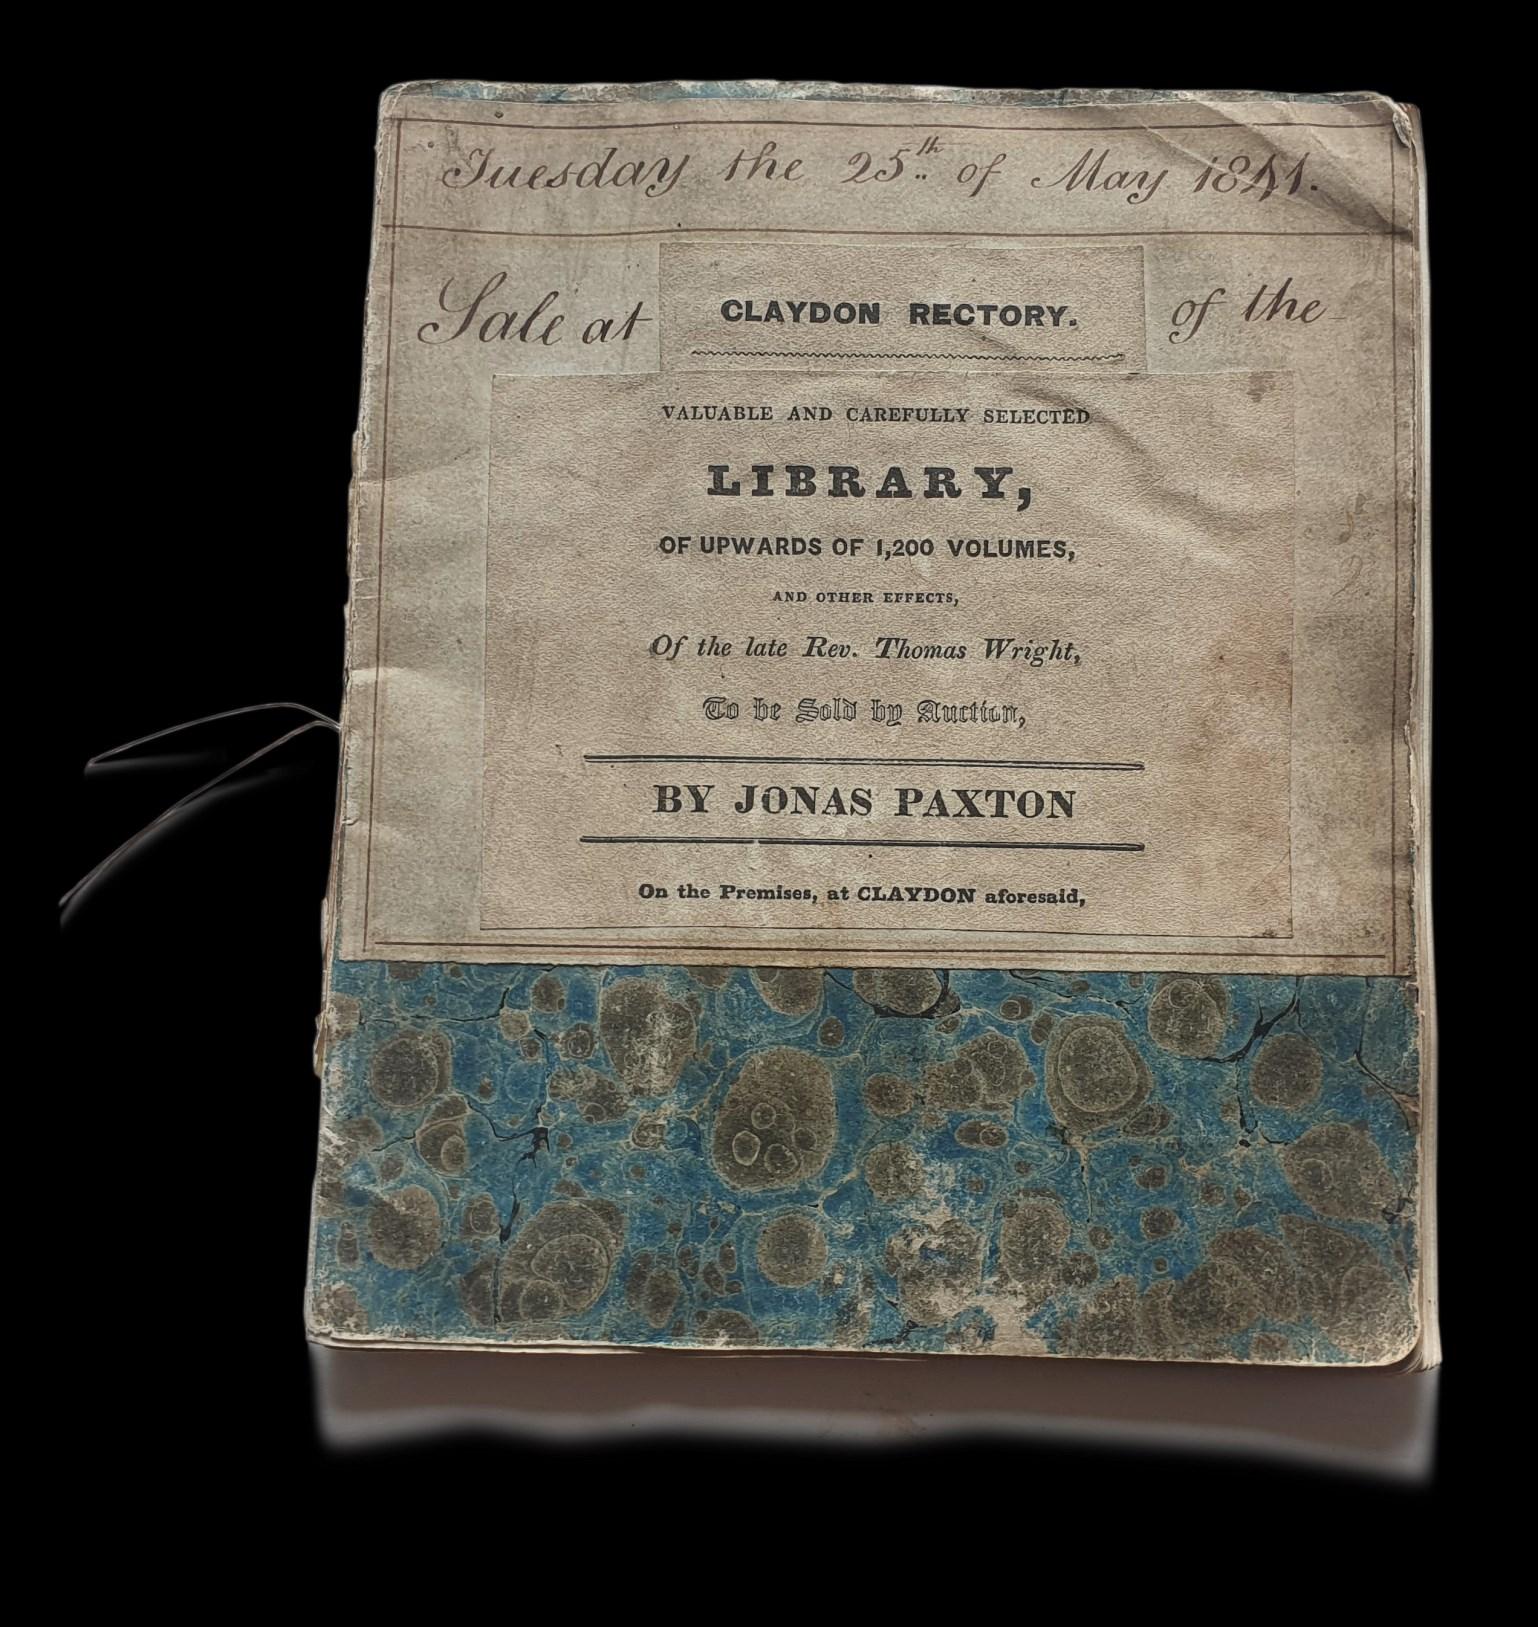 Tuesday the 25th of May 1841.
Sale at CLAYDON RECTORY. of the
VALUABLE AND CAREFULLY SELECTED
LIBRARY,
OF UPWARDS OF 1,200 VOLUMES,
AND OTHER EFFECTS,
Of the late Rev. Thomas Wright,
To be Sold by Auction,
BY JONAS PAXTON
On the Premises, at CLAYDON aforesaid,